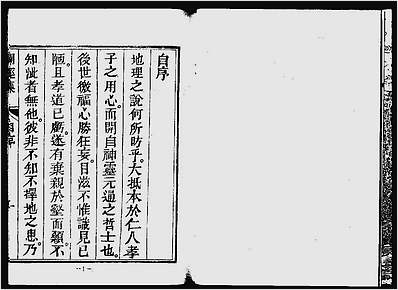 自序
地理之說何所昉乎。大抵本於仁人孝
子之用心。而開自神靈元通之哲士也。
後世徼福心勝。狂妄日滋。不惟識見已
陋。且孝道已虧。遂有棄親於壑而顏不
知泚者無他。彼非不知不擇地之患。乃
自序
一
-1-